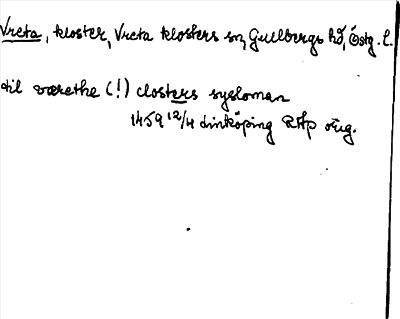 Vreta, kloster, Vreta klosters sn, Gullbergs hd, Östg. L.
til værethe (!) closters sysloman
1459 12/4 Linköping RAp orig.